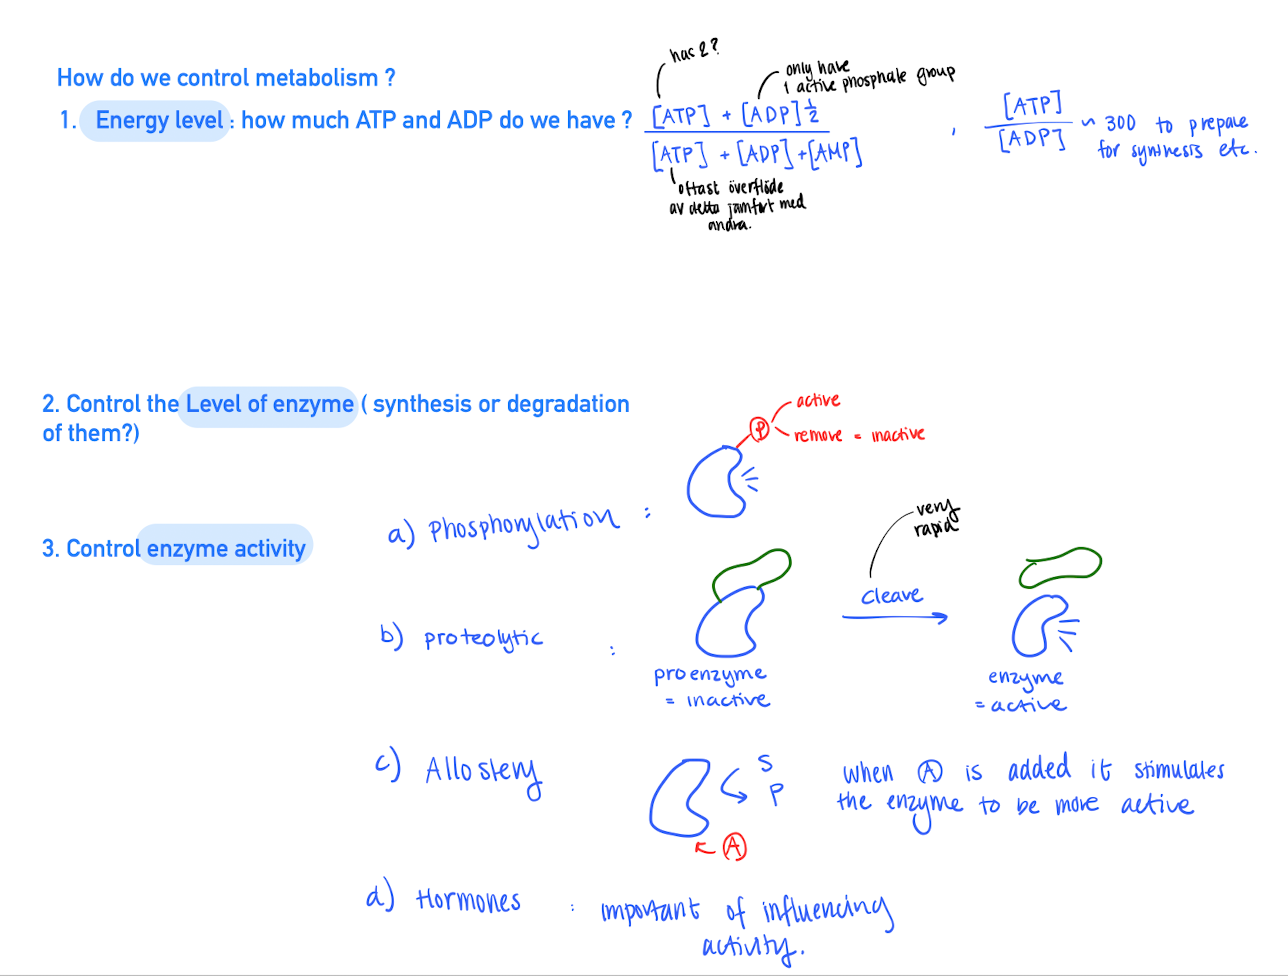 How do we control metabolism ?
has 2?
only have
1 active phosphate group
1. Energy level : how much ATP and ADP do we have ?
[ATP] + [ADP]½
[ATP] + [ADP] + [AMP]
, [ATP]
[ADP]
~ 300 to prepare
for synthesis etc.
oftast överflöde
av detta jämfört med
andra.
2. Control the Level of enzyme ( synthesis or degradation
of them?)
P
active
remove = inactive
3. Control enzyme activity
a) Phosphorylation :
very
rapid
cleave
b) proteolytic :
proenzyme
= inactive
enzyme
= active
c) Allostery
S
P
A
when A is added it stimulates
the enzyme to be more active
d) Hormones : important of influencing
activity.